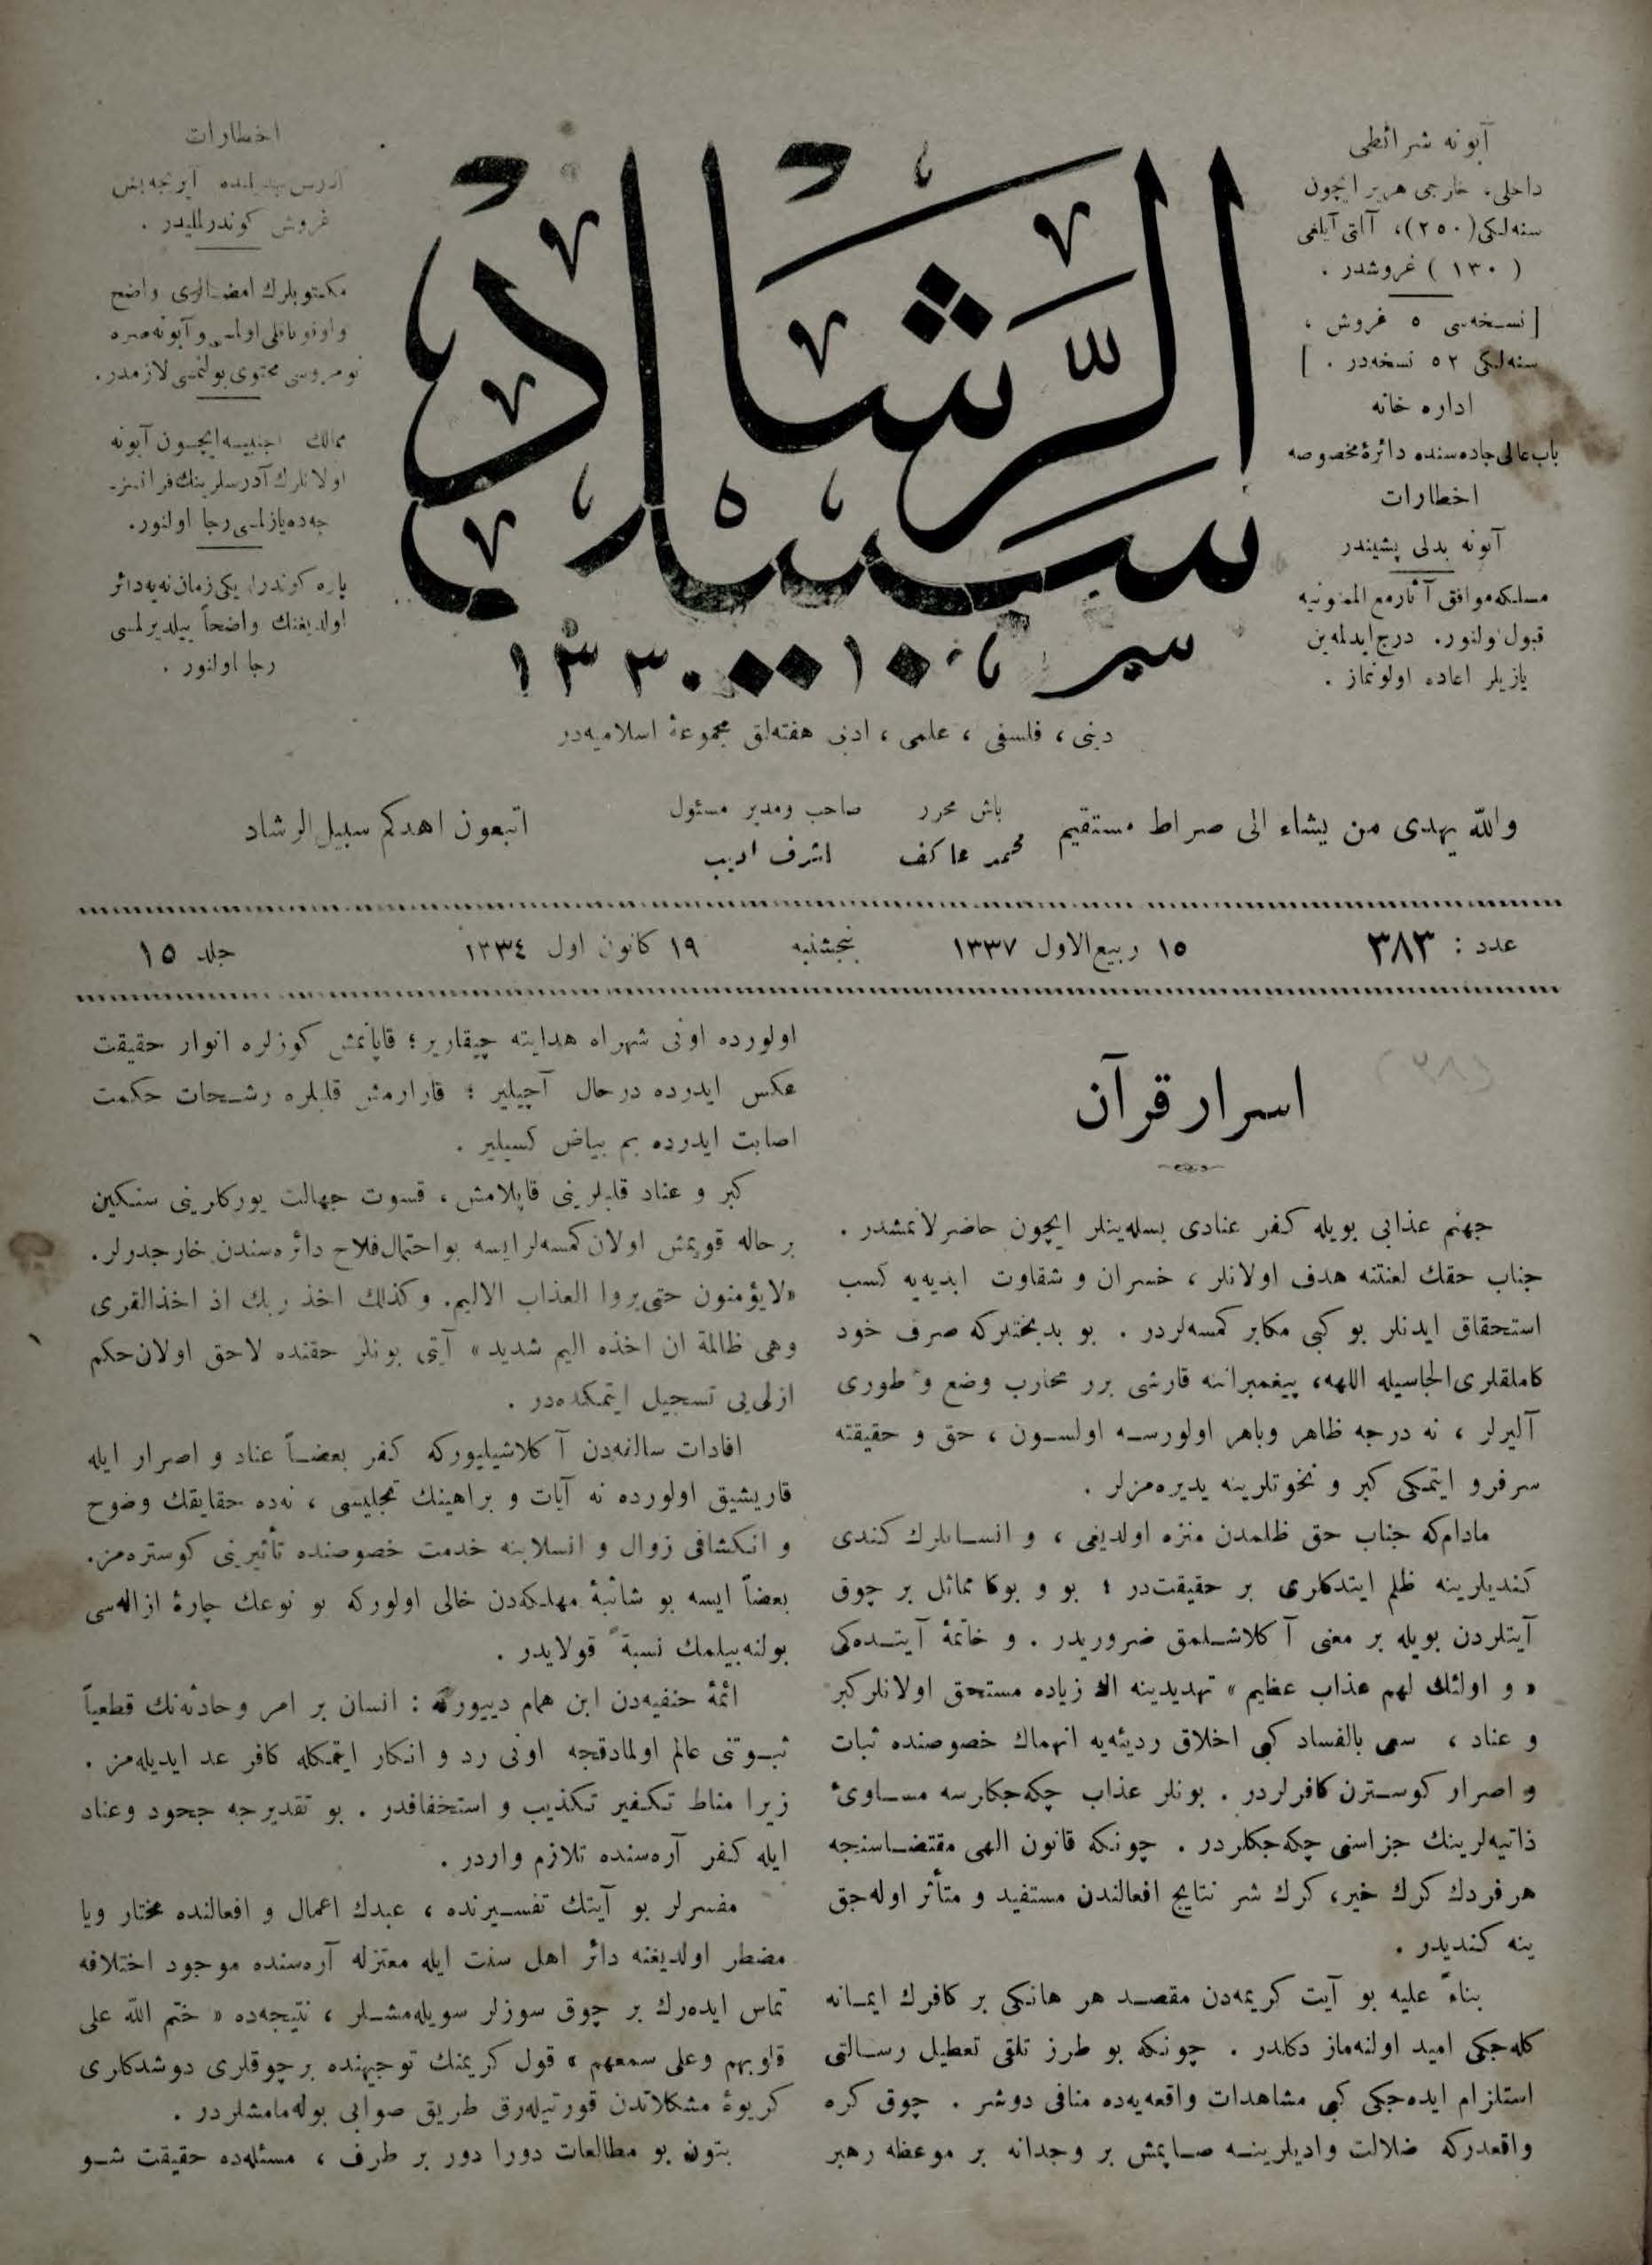 آبونه شرائطی
داخلی، خارجی هریر ایچون
سنه‌لكی (٢٥٠)، آلتی آیلغی
( ١٣٠ ) غروشدر .
[ نسخه‌سی ٥ غروش ،
سنه‌لكی ٥٢ نسخه‌در . ]
اداره خانه
باب عالی جاده‌سنده دائرهٔ مخصوصه
اخطارات
آبونه بدلی پشیندر
مسلكه موافق آثار مع الممنونیه
قبول اولنور. درج ایدلمه‌ین
یازیلر اعاده اولونماز .
سبیل الرشاد
١٣٣٠
اخطارات
آدرس تبدیلنده آیریجه بش
غروش كوندرلمليدر .
مكتوبلرك امضالری واضح
و اوقوناقلی اولمسی و آبونه صره
نومروسی محتوی بولنمسی لازمدر.
ممالك اجنبیه ایچون آبونه
اولانلرك آدرسلرینك فرانسز-
جه‌ده یازلمسی رجا اولنور.
پاره كوندرلدیكی زمان نه‌یه دائر
اولدیغنك واضحاً بیلدیرلمسی
رجا اولنور .
دینی ، فلسفی ، علمی ، ادبی هفته‌لق مجموعهٔ اسلامیه‌در
والله یهدی من یشاء الی صراط مستقیم
باش محرر
محمد عاكف
صاحب ومدیر مسئول
اشرف ادیب
اتبعون اهدكم سبیل الرشاد
عدد : ٣٨٣ ١٥ ربیع الاول ١٣٣٧ پنجشنبه ١٩ كانون اول ١٣٣٤ جلد ١٥
اسرار قرآن
جهنم عذابی بویله كفر عنادی بسله‌ینلر ایچون حاضرلانمشدر .
جناب حقك لعنتنه هدف اولانلر ، خسران و شقاوت ابدیه‌یه كسب
استحقاق ایدنلر بو كبی مكابر كمسه‌لردر . بو بدبختلركه صرف خود
كاملقلری الجاسیله اللهه، پیغمبراننه قارشی برر محارب وضع و طوری
آلیرلر ، نه درجه ظاهر وباهر اولورسه اولسون ، حق و حقیقته
سرفرو ایتمكی كبر و نخوتلرینه یدیره‌مزلر .
مادام‌كه جناب حق ظلمدن منزه اولدیغی ، و انسانلرك كندی
كندیلرینه ظلم ایتدكلری بر حقیقت‌در ؛ بو و بوكا مماثل بر چوق
آیتلردن بویله بر معنی آكلاشلمق ضروریدر . و خاتمهٔ آیتده‌كی
« و اولئك لهم عذاب عظیم » تهدیدینه الڭ زیاده مستحق اولانلر كبر
و عناد ، سعی بالفساد كبی اخلاق ردیئه‌یه انهماك خصوصنده ثبات
و اصرار كوسترن كافرلردر . بونلر عذاب چكه‌جكلرسه مساوئ
ذاتیه‌لرینك جزاسنی چكه‌جكلردر . چونكه قانون الهی مقتضاسنجه
هر فردك كرك خیر، كرك شر نتایج افعالندن مستفید و متأثر اوله‌جق
ینه كندیدر .
بناءً علیه بو آیت كریمه‌دن مقصد هر هانكی بر كافرك ایمانه
كله‌جكی امید اولنه‌ماز دكلدر . چونكه بو طرز تلقی تعطیل رسالتی
استلزام ایده‌جكی كبی مشاهدات واقعه‌یه‌ده منافی دوشر . چوق كره
واقعدركه ضلالت وادیلرینه صاپمش بر وجدانه بر موعظه رهبر
اولورده اونی شهراه هدایته چیقاریر ؛ قاپانمش كوزلره انوار حقیقت
عكس ایدرده درحال آچیلیر ؛ قارارمش قلبلره رشحات حكمت
اصابت ایدرده بم بیاض كسیلیر .
كبر و عناد قلبلرینی قاپلامش ، قسوت جهالت یوركلرینی سنكین
برحاله قویمش اولان كمسه‌لر ایسه بو احتمال فلاح دائره‌سندن خارجدرلر.
«لایؤمنون حتی یروا العذاب الالیم. وكذلك اخذ ربك اذ اخذ القری
وهی ظالمة ان اخذه الیم شدید» آیتی بونلر حقنده لاحق اولان حكم
ازلی‌یی تسجیل ایتمكده‌در .
افادات سالفه‌دن آكلاشیلیوركه كفر بعضاً عناد و اصرار ایله
قاریشیق اولورده نه آیات و براهینك تجلیسی ، نه‌ده حقایقك وضوح
و انكشافی زوال و انسلابنه خدمت خصوصنده تأثیرینی كوستره‌مز.
بعضاً ایسه بو شائبهٔ مهلكه‌دن خالی اولوركه بو نوعك چارهٔ ازاله‌سی
بولنه‌بیلمك نسبةً قولایدر .
ائمهٔ حنفیه‌دن ابن همام دییوركه : انسان بر امر وحادثه‌نك قطعیاً
ثبوتنی عالم اولمادقجه اونی رد و انكار ایتمكله كافر عد ایدیله‌مز .
زیرا مناط تكفیر تكذیب و استخفافدر . بو تقدیرجه جحود وعناد
ایله كفر آره‌سنده تلازم واردر .
مفسرلر بو آیتك تفسیرنده ، عبدك اعمال و افعالنده مختار ویا
مضطر اولدیغنه دائر اهل سنت ایله معتزله آره‌سنده موجود اختلافه
تماس ایده‌رك بر چوق سوزلر سویله‌مشلر ، نتیجه‌ده « ختم الله علی
قلوبهم وعلی سمعهم » قول كریمنك توجیهنده برچوقلری دوشدكلری
كریوهٔ مشكلاتدن قورتیله‌رق طریق صوابی بوله‌مامشلردر .
بتون بو مطالعات دورا دور بر طرف ، مسئله‌ده حقیقت شو